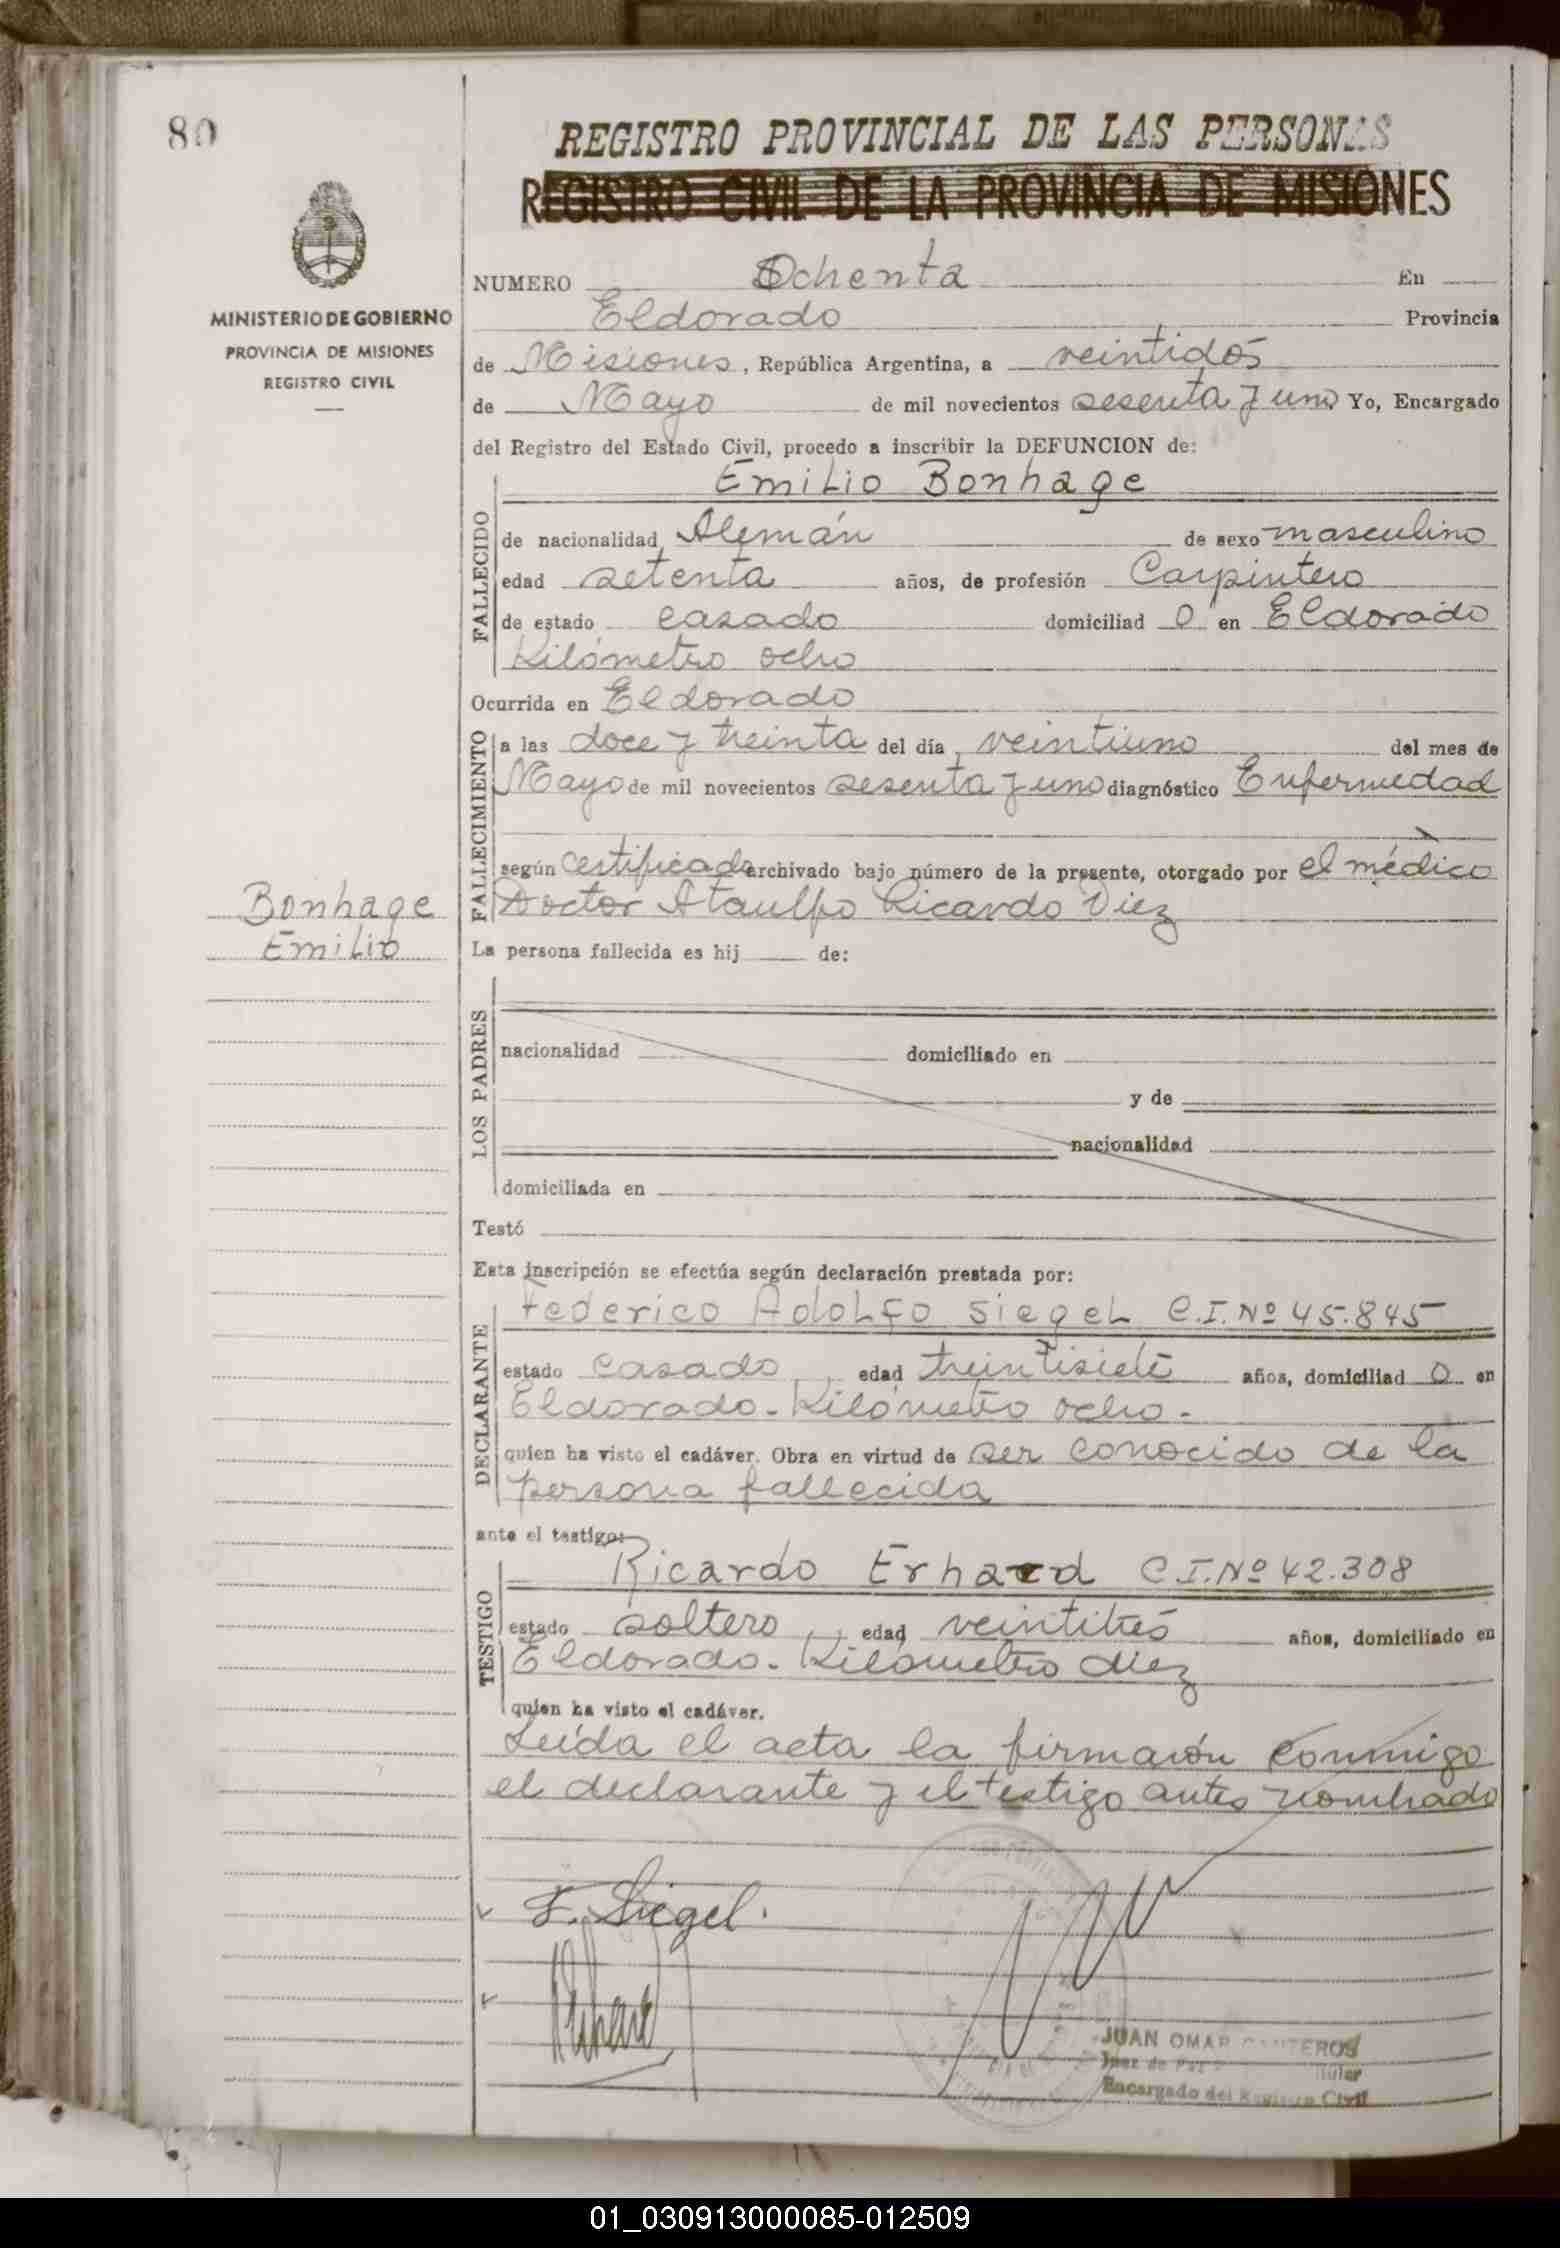 80
REGISTRO PROVINCIAL DE LAS PERSONAS
REGISTRO CIVIL DE LA PROVINCIA DE MISIONES
MINISTERIO DE GOBIERNO
PROVINCIA DE MISIONES
REGISTRO CIVIL
NUMERO Ochenta En
Eldorado Provincia
de Misiones, República Argentina, a veintidós
de Mayo de mil novecientos sesenta y uno Yo, Encargado
del Registro del Estado Civil, procedo a inscribir la DEFUNCION de:
FALLECIDO
Emilio Bonhage
de nacionalidad Alemán de sexo masculino
edad setenta años, de profesión Carpintero
de estado casado domiciliad o en Eldorado
Kilómetro ocho
Ocurrida en Eldorado
FALLECIMIENTO
a las doce y treinta del día veintiuno del mes de
Mayo de mil novecientos sesenta y uno diagnóstico Enfermedad
según certificado archivado bajo número de la presente, otorgado por el médico
Doctor Ataulfo Ricardo Diez
Bonhage
Emilio
La persona fallecida es hij de:
LOS PADRES
nacionalidad domiciliado en
y de
nacionalidad
domiciliada en
Testó
Esta inscripción se efectúa según declaración prestada por:
DECLARANTE
Federico Adolfo Siegel C.I.Nº 45.845
estado casado, edad treintisiete años, domiciliad o en
Eldorado - Kilómetro ocho -
quien ha visto el cadáver. Obra en virtud de ser conocido de la
persona fallecida
ante el testigo:
TESTIGO
Ricardo Erhard C.I.Nº 42.308
estado soltero, edad veintitrés años, domiciliado en
Eldorado - Kilómetro diez
quien ha visto el cadáver.
Leída el acta la firmarón conmigo
el declarante y el testigo antes nombrado
F. Siegel.
JUAN OMAR CANTEROS
Juez de Paz
Encargado del Registro Civil
01_030913000085-012509